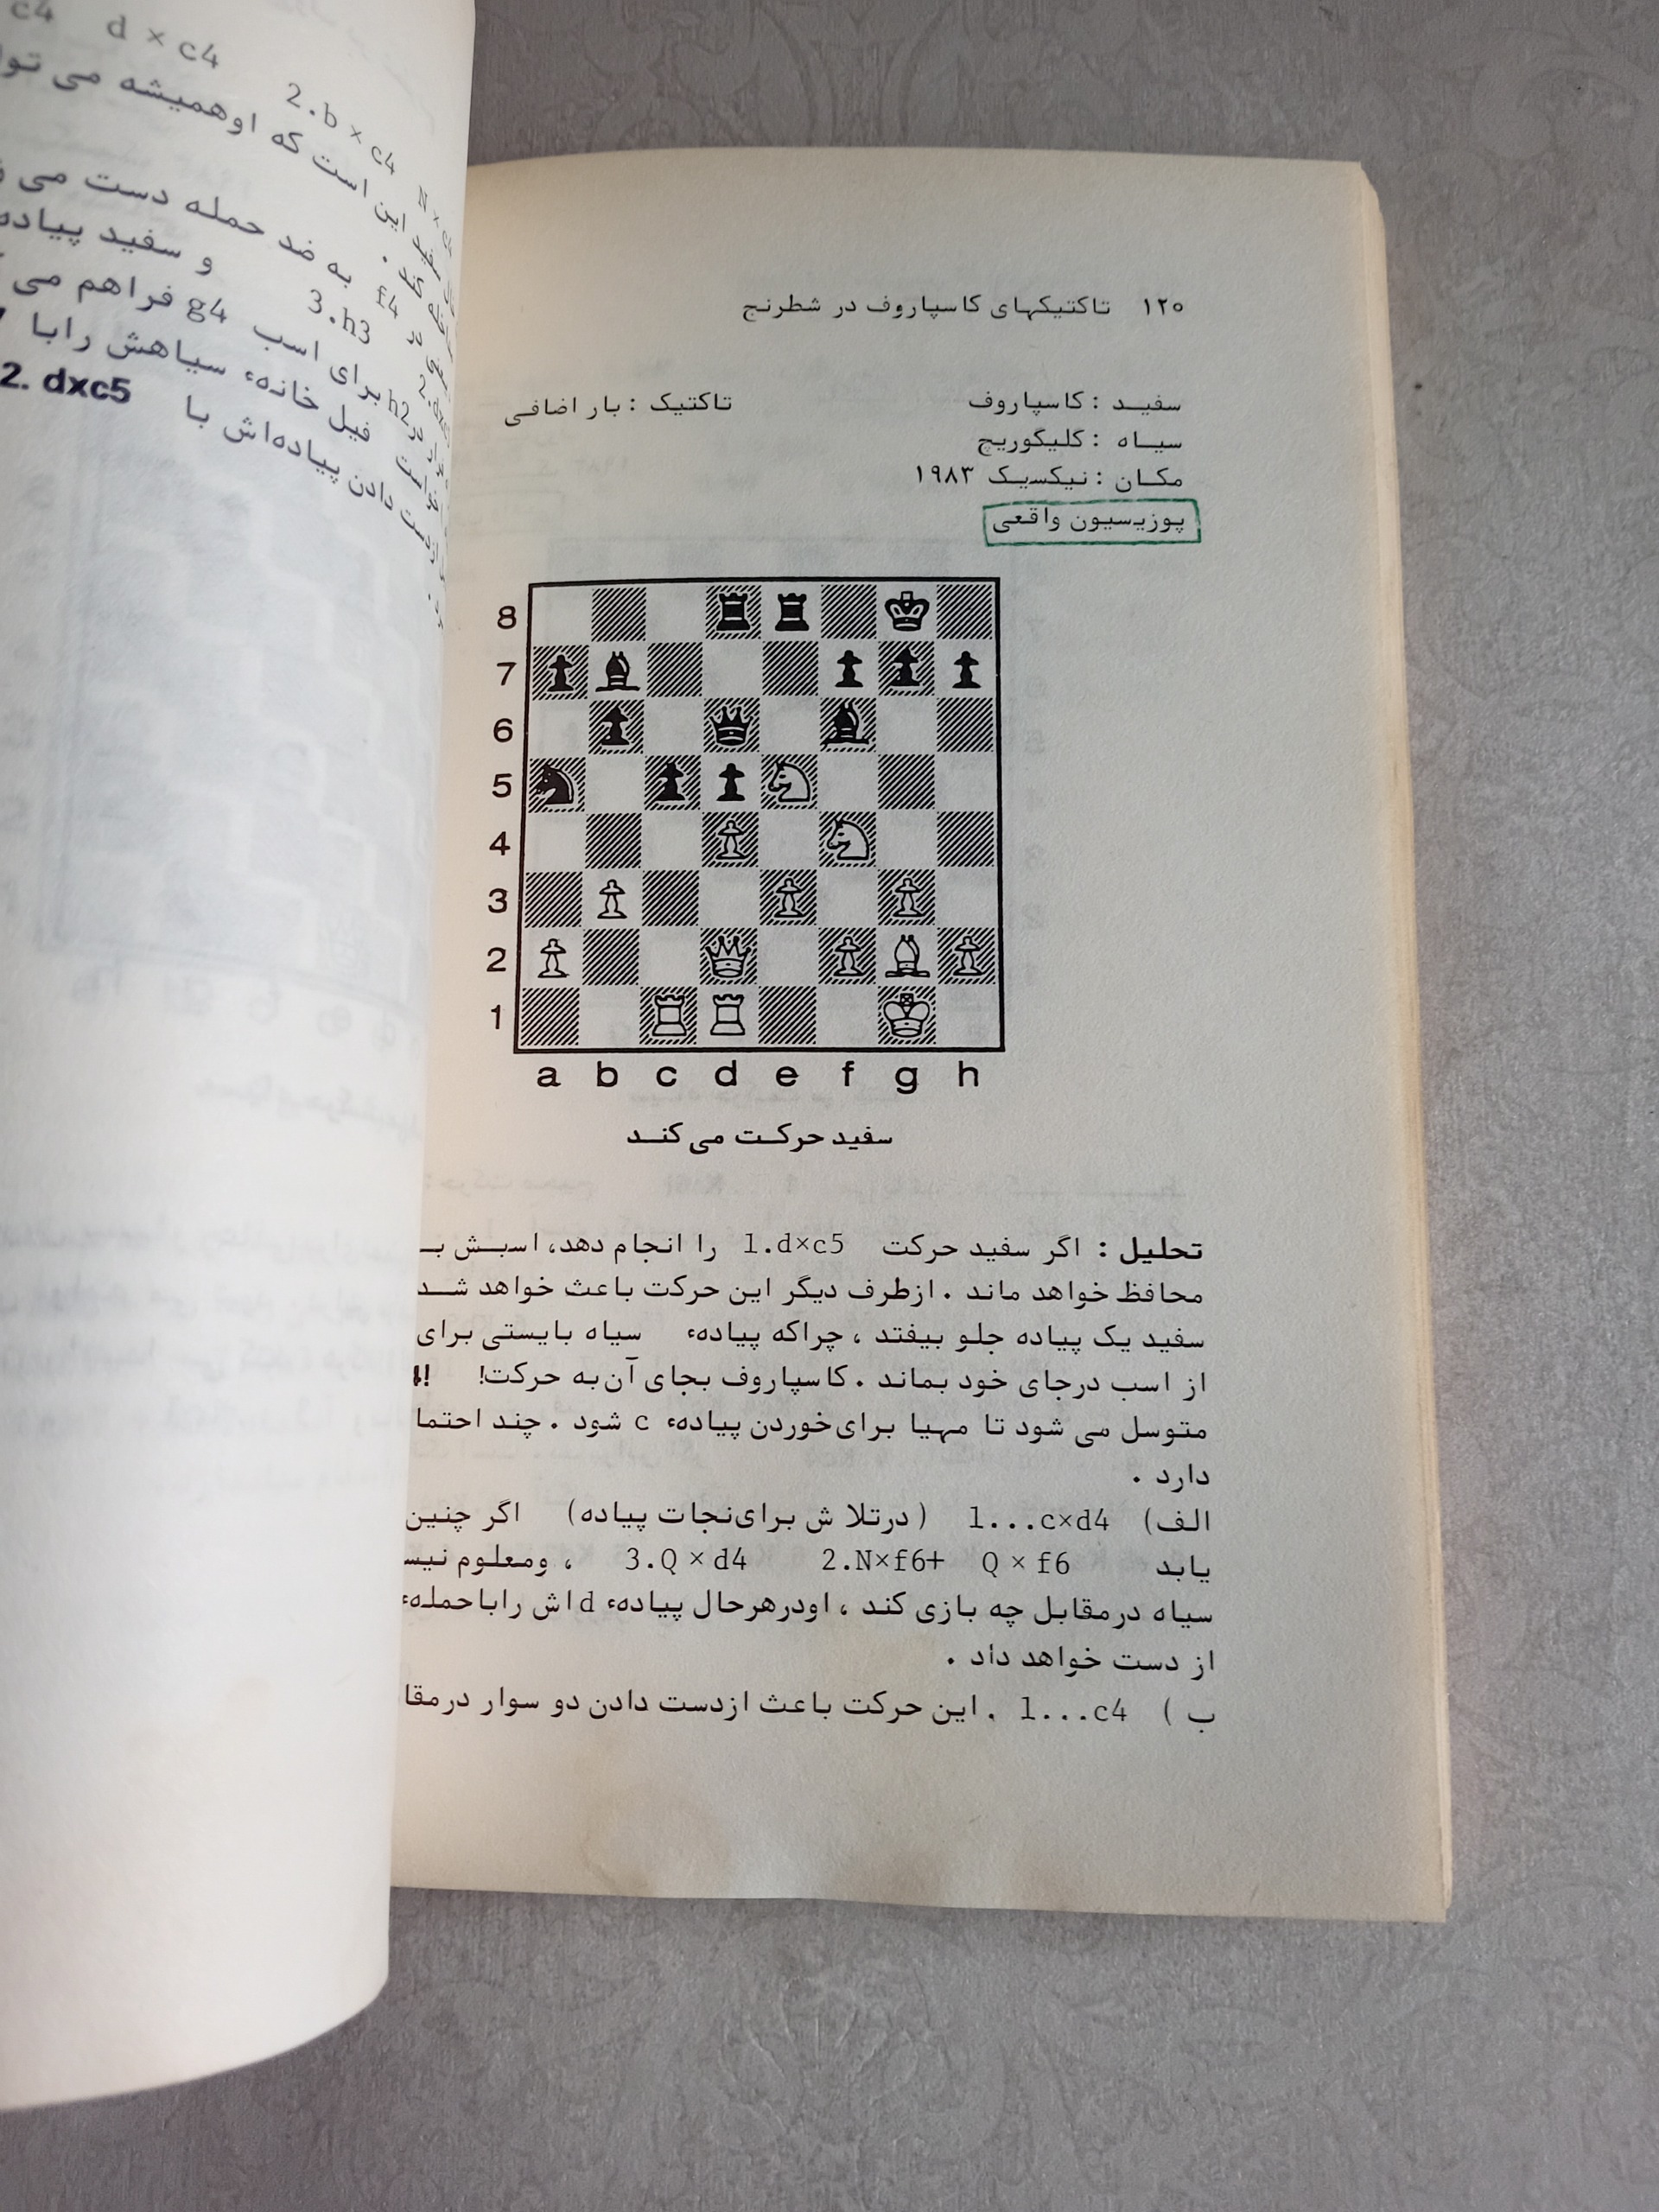 c4 d × c4
2.b × c4 N ×
این است که اوهمیشه می توا
به ضد حمله دست می
f4
3.h3 و سفید پیاده
برای اسب g4 فراهم می
h2 فیل خانهء سیاهش رابا
2. dxc5
دادن پیاده‌اش با
۱۲۰ تاکتیکهای کاسپاروف در شطرنج
سفید : کاسپاروف تاکتیک : بار اضافی
سیاه : گلیگوریچ
مکان : نیکسیک ۱۹۸۳
پوزیسیون واقعی
8
7
6
5
4
3
2
1
a b c d e f g h
سفید حرکت می‌کند
تحلیل : اگر سفید حرکت 1.d×c5 را انجام دهد، اسبش بـ
محافظ خواهد ماند . ازطرف دیگر این حرکت باعث خواهد شد
سفید یک پیاده جلو بیفتد ، چراکه پیادهء سیاه بایستی برای
از اسب درجای خود بماند . کاسپاروف بجای آن به حرکت! !4
متوسل می شود تا مهیا برای‌خوردن پیادهء c شود . چند احتما
دارد .
الف) 1...c×d4 (درتلاش برای‌نجات پیاده) اگر چنین
یابد 2.N×f6+ Q × f6 3.Q × d4 ، ومعلوم نیس
سیاه درمقابل چه بازی کند ، اودرهرحال پیادهء dاش راباحملهء
از دست خواهد داد .
ب ) 1...c4 . این حرکت باعث ازدست دادن دو سوار درمقا